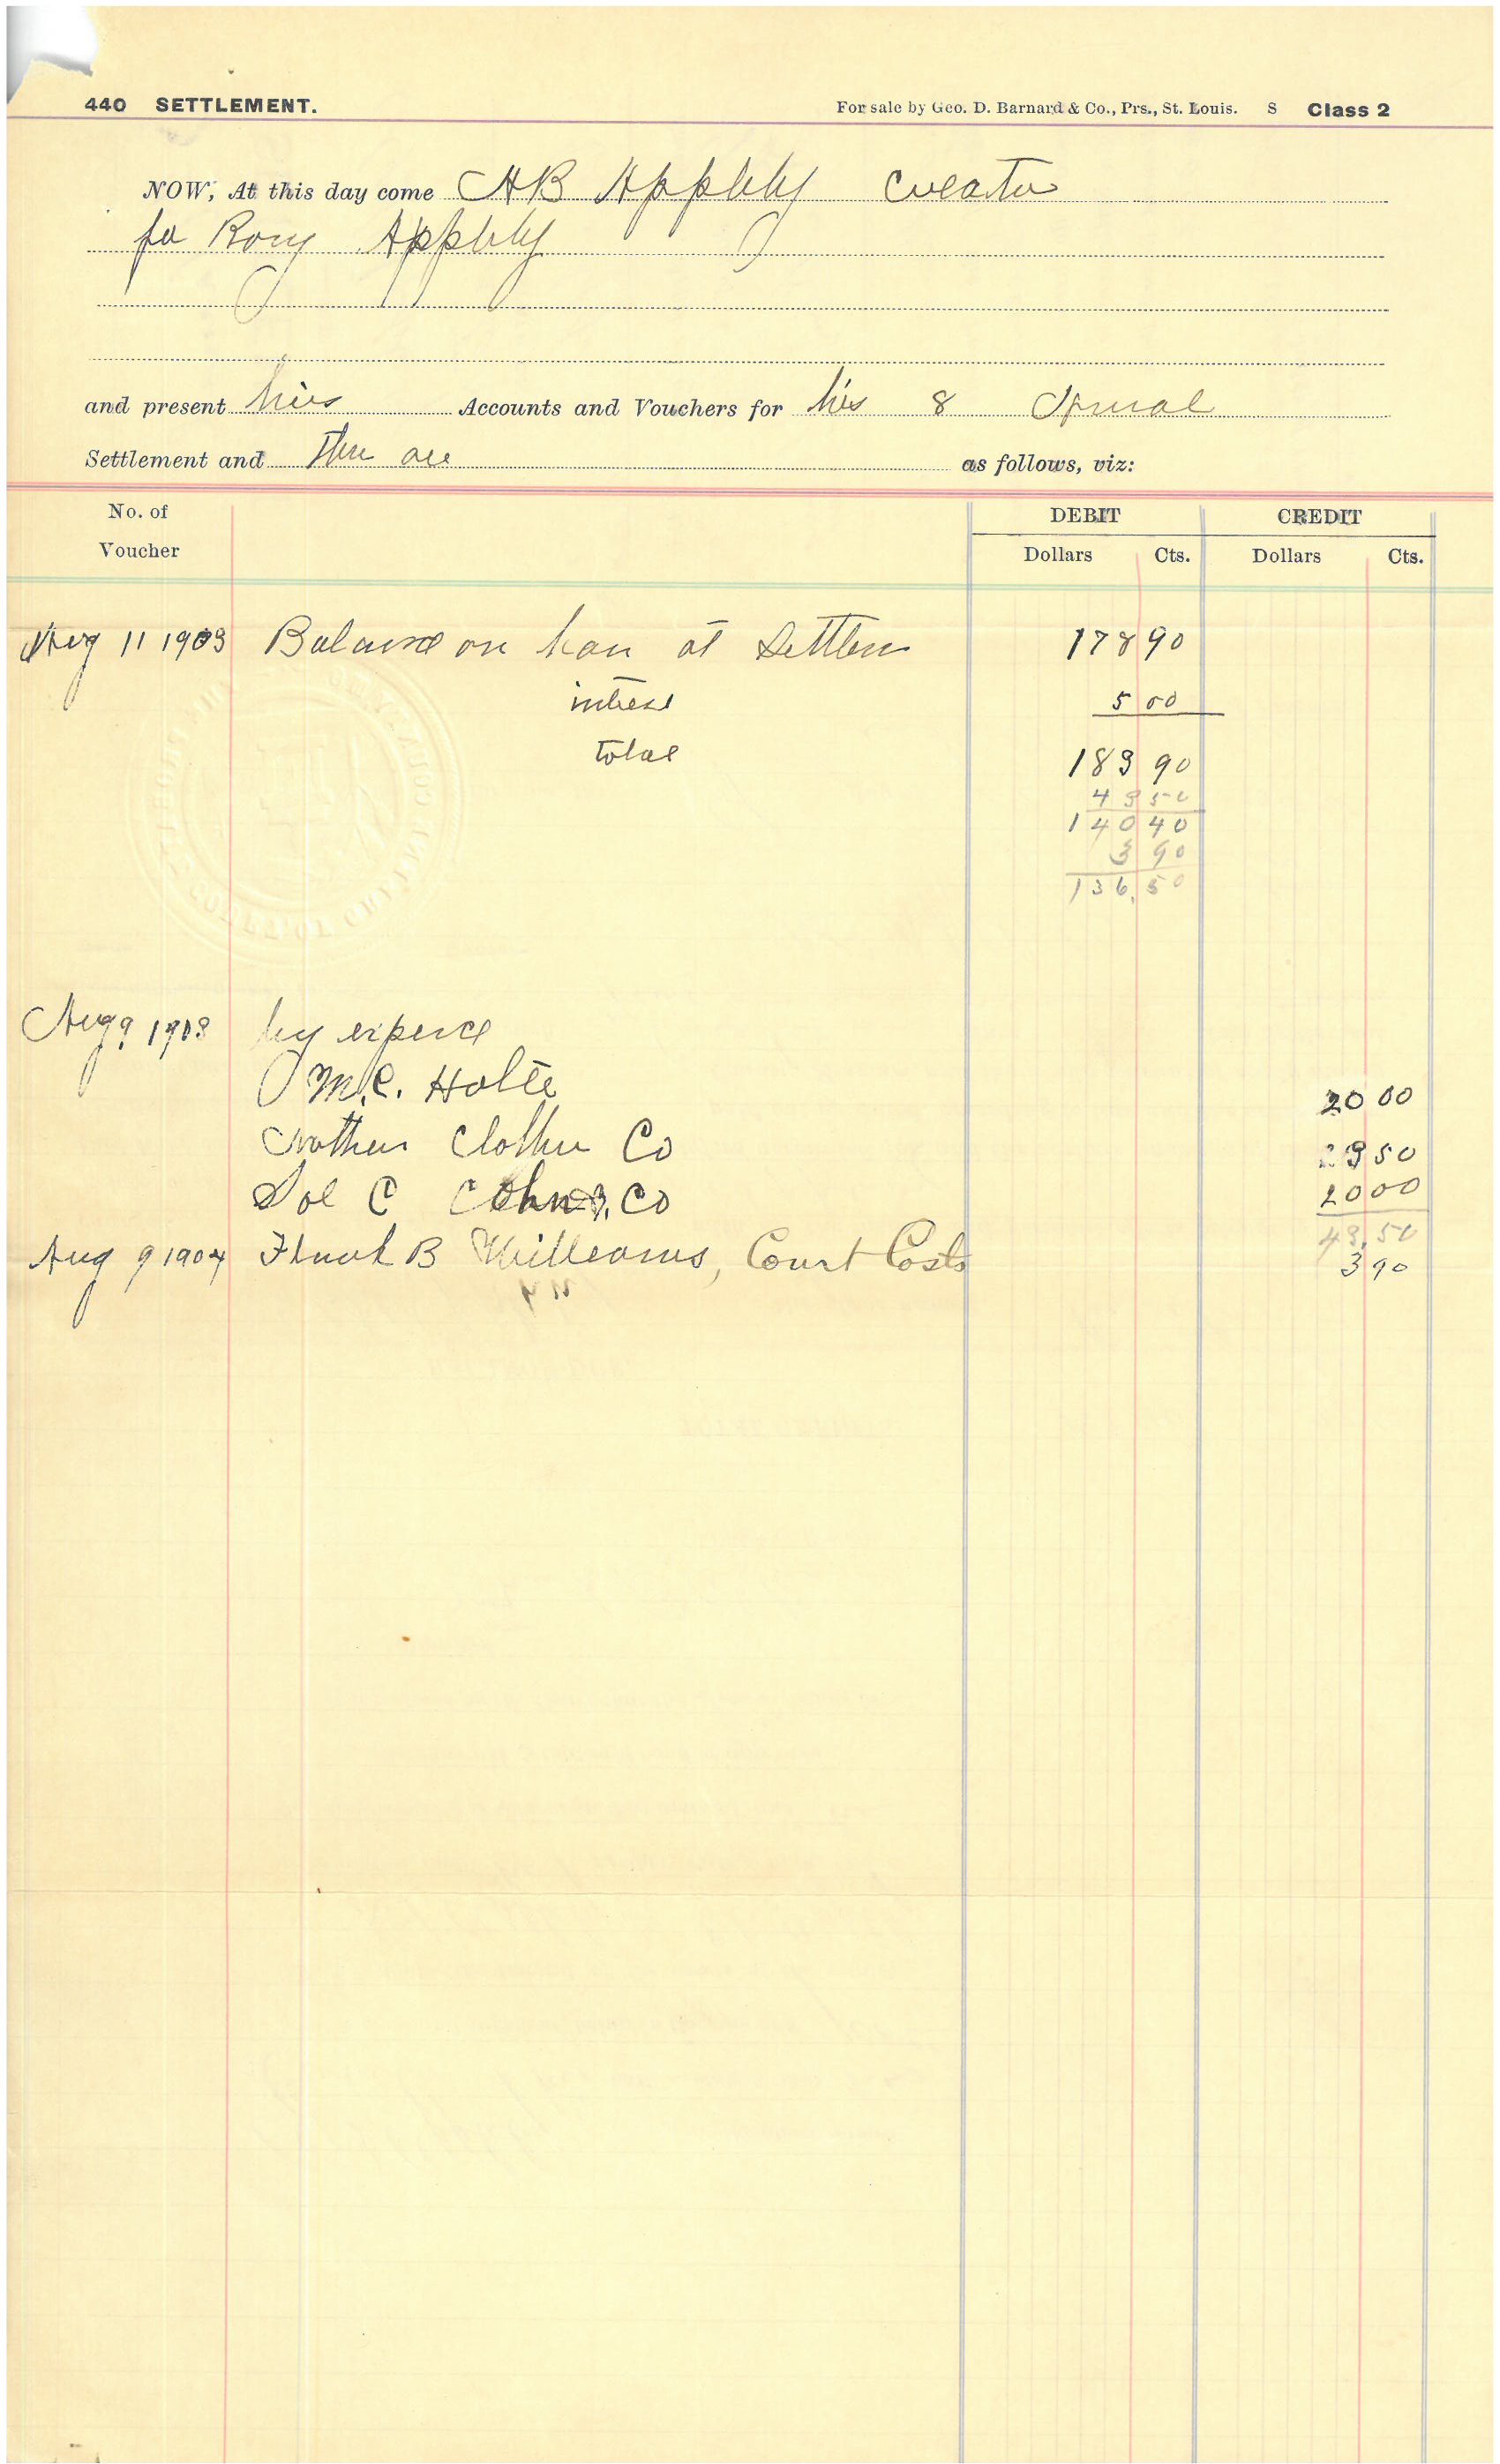 440 SETTLEMENT. For sale by Geo. D. Barnard & Co., Prs., St. Louis. S Class 2
NOW, At this day come AB Appleby
for Roxy Appleby
and present his Accounts and Vouchers for his 8
Settlement and as follows, viz:
No. of Voucher DEBIT CREDIT
Dollars Cts. Dollars Cts.
Aug 11 1903 Balance on han at Settlem 178 90
interest 5 00
total 183 90
43 50
140 40
3 90
136.50
Aug 9 1903 by expence
M.C. Holte 20 00
Clothin Co 3 50
Sol C Cohn & Co 20 00
43.50
Aug 9 1904 Frank B Williams, Court Costs 3 90